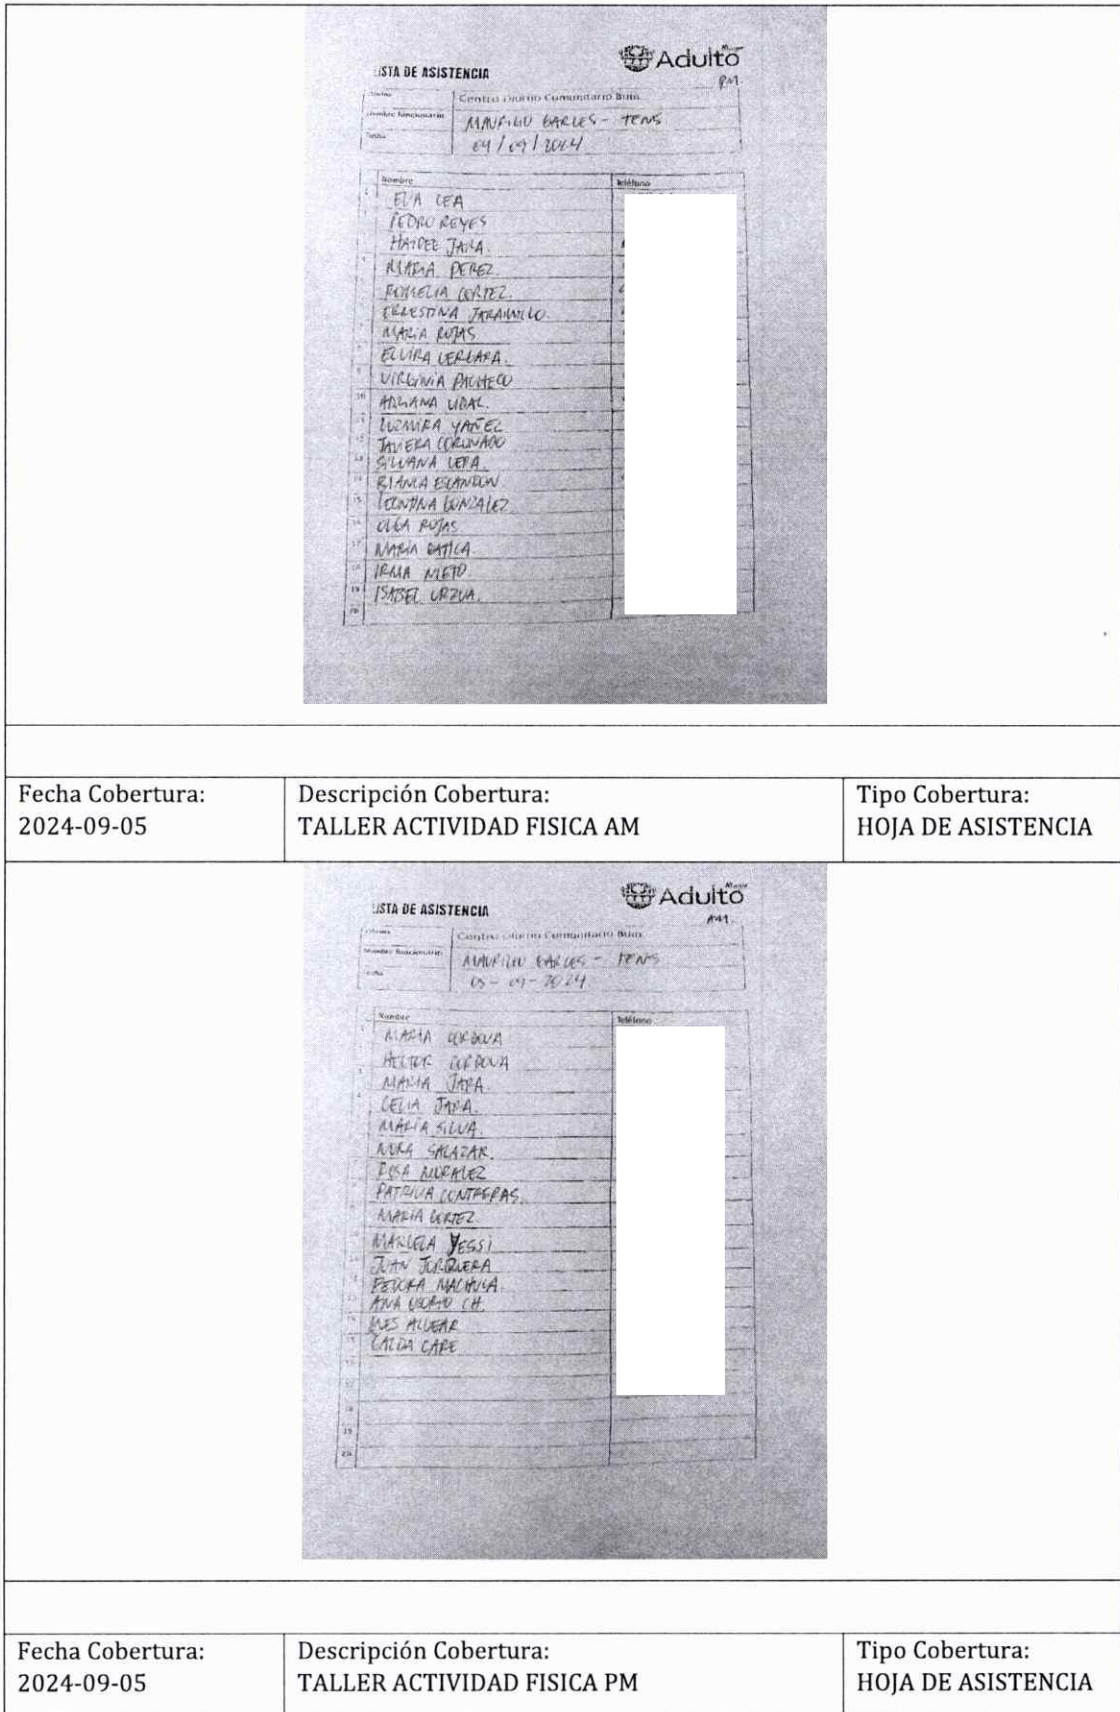 LISTA DE ASISTENCIA
Adulto Mayor
PM.
Centro Diurno Comunitario Buin
Nombre funcionario
MAURILIO GARCES - TENS
Fecha
04/09/2024
Nombre
Teléfono
EVA CEA
PEDRO REYES
HAIDEE JARA.
MARIA PEREZ.
ROMELIA CORTEZ.
ERNESTINA JARAMILLO.
MARIA ROJAS.
ELVIRA VERGARA.
VIRGINIA PACHECO
10 ADRIANA VIDAL.
11 LUZMIRA YAÑEZ
12 JAVIERA CORONADO
13 SILVANA
14 BIANCA ESCANDON.
15 LEONTINA GONZALEZ
16 OLGA ROJAS
17 MARIA
18 IRMA NIETO.
19 ISABEL URZUA.
20
Fecha Cobertura:
2024-09-05
Descripción Cobertura:
TALLER ACTIVIDAD FISICA AM
Tipo Cobertura:
HOJA DE ASISTENCIA
LISTA DE ASISTENCIA
Adulto Mayor
AM.
Centro Diurno Comunitario Buin
Nombre funcionario
MAURILIO GARCES - TENS
05-09-2024
Nombre
Teléfono
MARIA CORDOVA
HECTOR CORDOVA
MARIA JARA
CELIA JARA.
MARIA SILVA.
NORA SALAZAR.
ROSA MORALEZ
PATRICIA CONTRERAS.
MARIA CORTEZ
MARCELA YESSI
JUAN JORQUERA
PEDORA MACHUCA.
ANA OSORIO CH.
INES ALVEAR
CARE
18
19
20
Fecha Cobertura:
2024-09-05
Descripción Cobertura:
TALLER ACTIVIDAD FISICA PM
Tipo Cobertura:
HOJA DE ASISTENCIA